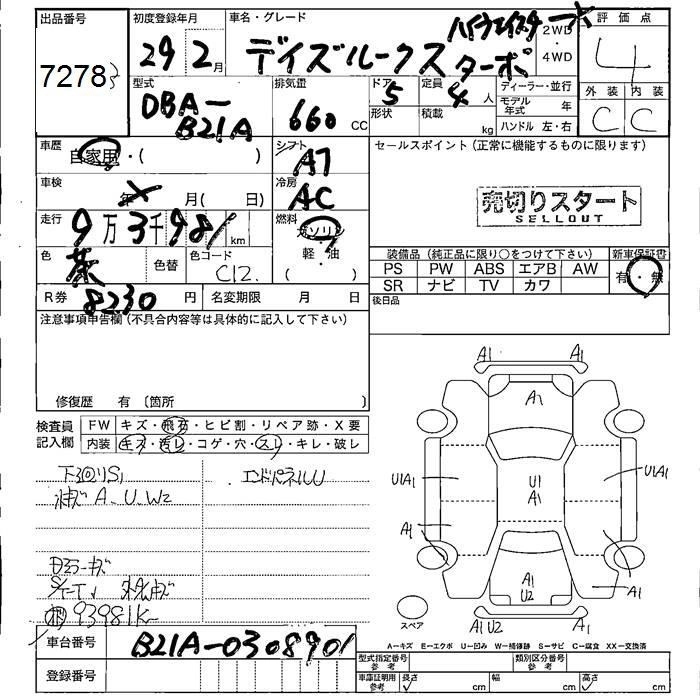 出品番号 初度登録年月 車名・グレード ハイウェイスター 2WD・4WD 評価点
7278 29年 2月 デイズルークス ターボ 4
型式 DBA-B21A 排気量 660 CC ドア 5 形状 定員 4人 積載 kg ディーラー・並行 モデル年式 年 ハンドル 左・右 外装 C 内装 C
車歴 自家用・( ) シフト AT セールスポイント(正常に機能するものに限ります)
車検 年 月( 日) 冷房 AC
売切りスタート
SELLOUT
走行 9万3千981km 燃料 ガソリン 軽・油
色 茶 色替 色コード C12.
装備品(純正品に限り○をつけて下さい) 新車保証書
PS PW ABS エアB AW 有・無
SR ナビ TV カワ
R券 8230円 名変期限 月 日 後日品
注意事項申告欄(不具合内容等は具体的に記入して下さい)
修復歴 有〔箇所
検査員記入欄 FW キズ・飛石・ヒビ割・リペア跡・X要
内装 キズ・汚レ・コゲ・穴・スレ・キレ・破レ
下回りS1 エンドパネルU
A1 A1
A1
U1A1 U1 A1 U1A1
A1
A1 U2 A1
A1 U2 A1
スペア
93981K
A=キズ E=エクボ U=凹み W=補修跡 S=サビ C=腐食 XX=交換済
車台番号 B21A-0308901
型式指定番号 参考 類別区分番号 参考
登録番号
車庫証明用 参考 長さ cm 幅 cm 高さ cm